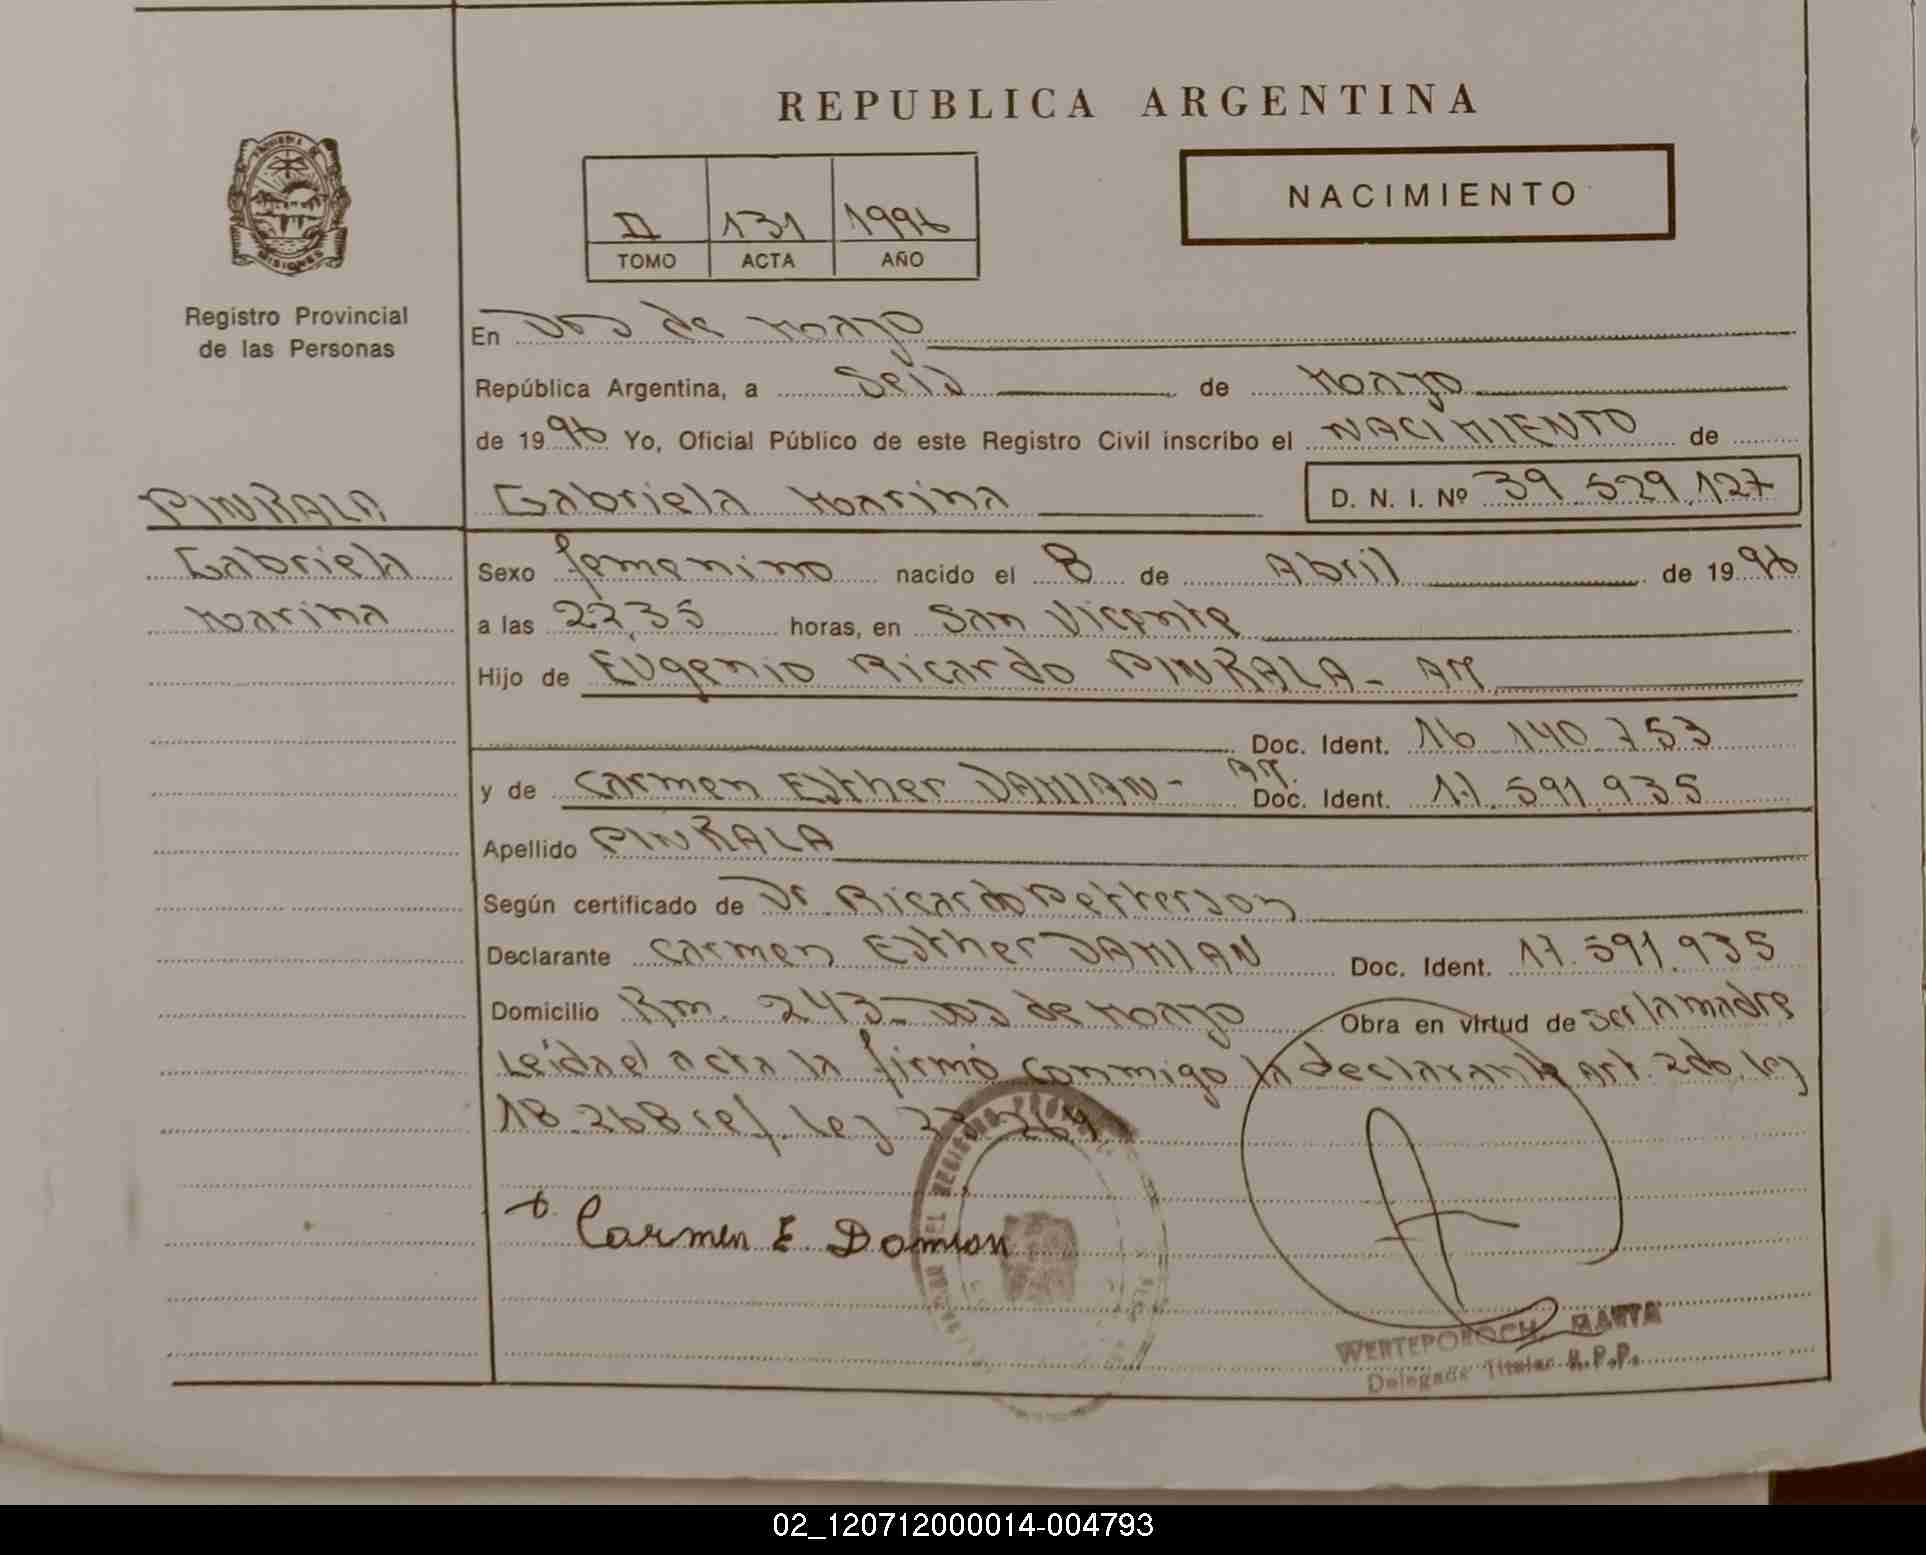 REPUBLICA ARGENTINA
NACIMIENTO
II 131 1996
TOMO ACTA AÑO
MISIONES
Registro Provincial
de las Personas
En Dos de Mayo
República Argentina, a Seis de Mayo
de 1996 Yo, Oficial Público de este Registro Civil inscribo el NACIMIENTO de
PINKALA
Gabriela Marina D. N. I. Nº 39.529.127
Gabriela
Marina
Sexo femenino nacido el 8 de Abril de 1996
a las 22,35 horas, en San Vicente
Hijo de Eugenio Ricardo PINKALA - AR
Doc. Ident. 16.140.753
y de Carmen Esther DAMIAN - AR. Doc. Ident. 17.591.935
Apellido PINKALA
Según certificado de Dr Ricardo Petterson
Declarante Carmen Esther DAMIAN Doc. Ident. 17.591.935
Domicilio Km. 243 - Dos de Mayo Obra en virtud de ser la madre
Leida el acta la firmó conmigo la declarante Art. 2do. ley
18.268 ref. ley
Carmen E Domian
WERTEPOROCH, MARTA
Delegada Titular R.P.P.
02_120712000014-004793